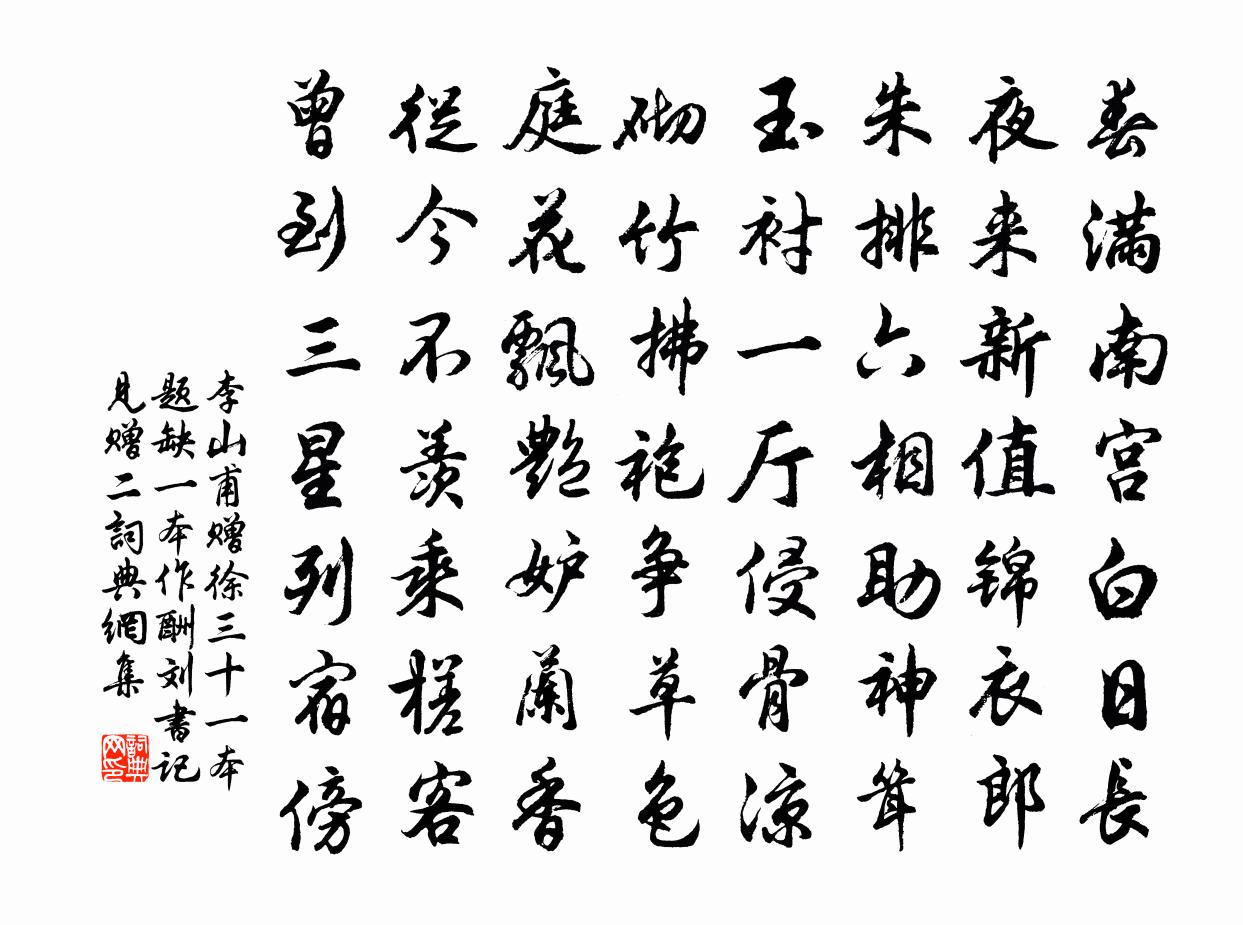 春满南宫白日長
夜来新值锦衣郎
朱排六相助神耸
玉衬一厅侵骨凉
砌竹拂袍争草色
庭花飄艷妒蘭香
從今不羡乘槎客
曾到三星列宿傍
李山甫赠徐三十一本
题缺一本作酬刘書记
見赠二詞典網集
詞典
网印